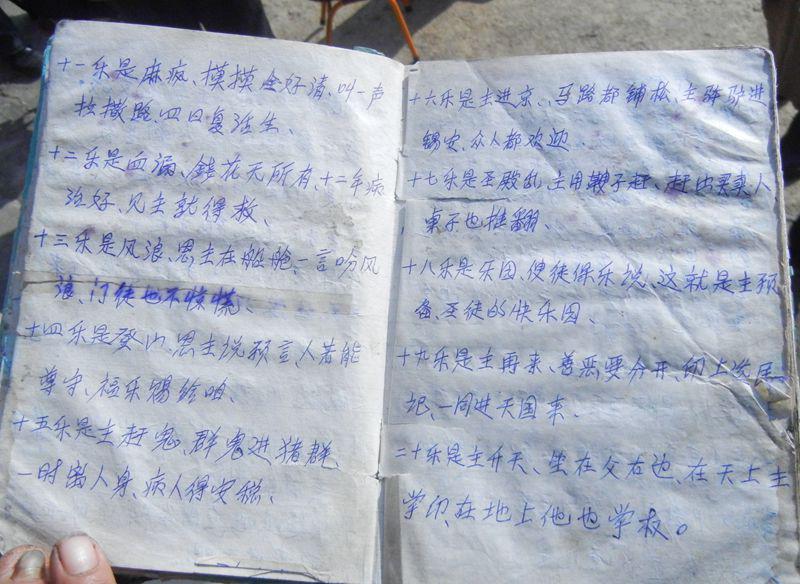 十一乐是麻疯、摸摸全好清、叫一声
拉撒路、四日复活生、
十二乐是血漏、钱花无所有、十二年病
治好、见主就得救、
十三乐是风浪、恩主在船舱、一言吩风
浪、门徒也不惊慌、
十四乐是登山、恩主说预言、人若能
尊守、福乐赐给咱、
十五乐是主赶鬼、群鬼进猪群、
一时离人身、病人得安稳、
十六乐是主进京、马路都铺松、主骑驴进
锡安、众人都欢迎、
十七乐是圣殿乱、主用鞭子赶、赶出买卖人
桌子也推翻、
十八乐是乐园、使徒保乐说、这就是主预
备、圣徒的快乐园、
十九乐是主再来、善恶要分开、
一同进天国来、
二十乐是主升天、坐在父右边、在天上主
掌印、在地上他也掌权。